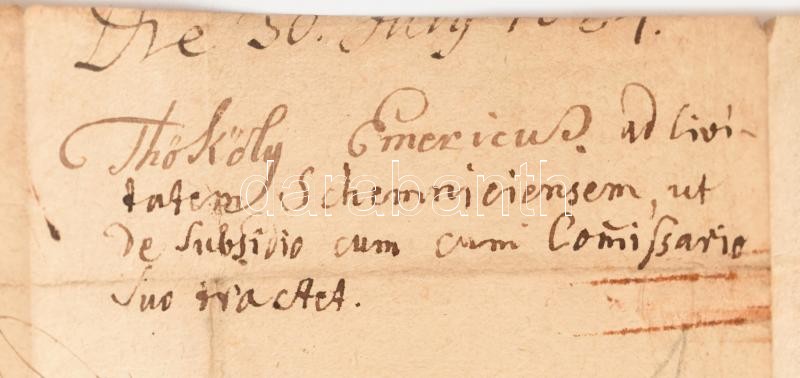 Die 30. July
Thököly Emericus ad Civi-
tatem Schemniciensem, ut
de Subsidio cum cum Com̃issario
Suo tractet.
darabanth